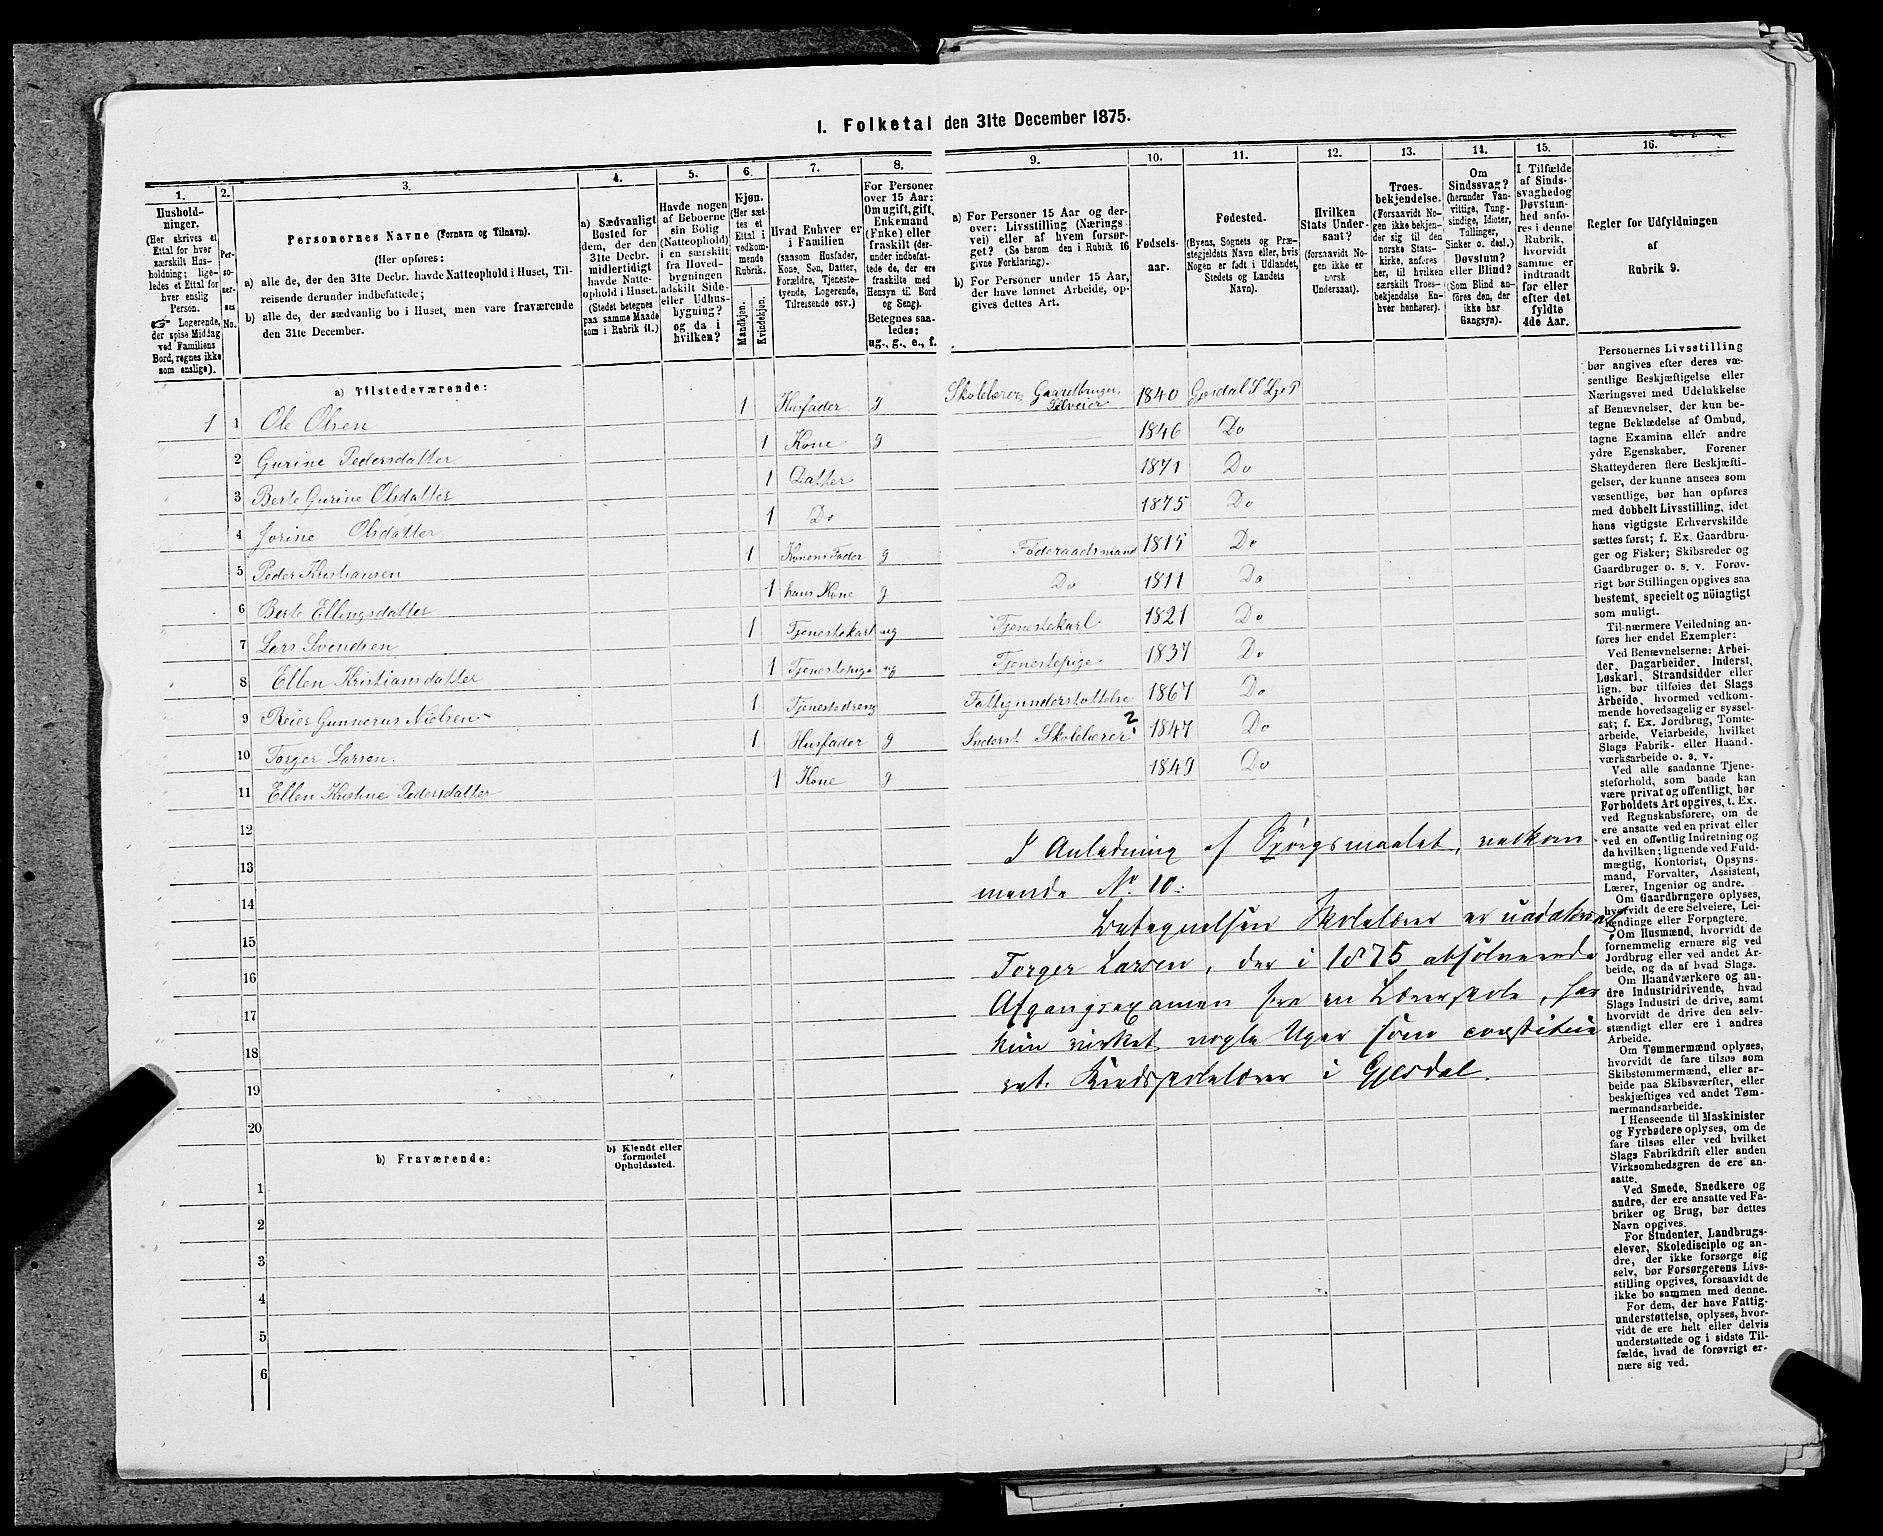 I. Folketal den 31te December 1875.
1. 2. 3. 4. 5. 6. 7. 8. 9. 10. 11. 12. 13. 14. 15. 16.
Hushold-
ninger.
(Her skrives et
Ettal for hver
særskilt Hus-
holdning; lige-
ledes et Ettal for
hver enslig
Person.
☞ Logerende,
der spise Middag
ved Familiens
Bord, regnes ikke
som enslige).
Per-
so-
ner-
nes
No.
Personernes Navne (Fornavn og Tilnavn).
(Her opføres:
a) alle de, der den 31te Decbr. havde Natteophold i Huset, Til-
reisende derunder indbefattede;
b) alle de, der sædvanlig bo i Huset, men vare fraværende
den 31te December.
a) Sædvanligt
Bosted for
dem, der den
31te Decbr.
midlertidigt
havde Natte-
ophold i Huset.
(Stedet betegnes
paa samme Maade
som i Rubrik 11.)
Havde nogen
af Beboerne
sin Bolig
(Natteophold)
i en særskilt
fra Hoved-
bygningen
adskilt Side-
eller Udhus-
bygning?
og da i
hvilken?
Kjøn.
(Her sæt-
tes et
Ettal i
vedkom-
mende
Rubrik.
Mandkjøn.
Kvindekjøn.
Hvad Enhver er
i Familien
(saasom Husfader,
Kone, Søn, Datter,
Forældre, Tjeneste-
tyende, Logerende,
Tilreisende osv.)
For Personer
over 15 Aar:
Om ugift, gift,
Enkemand
(Enke) eller
fraskilt (der-
under indbefat-
tede de, der ere
fraskilte med
Hensyn til Bord
og Seng).
Betegnes saa-
ledes:
ug., g., e., f.
a) For Personer 15 Aar og der-
over: Livsstilling (Nærings
vei) eller af hvem forsør-
get? (Se herom den i Rubrik 16
givne Forklaring).
b) For Personer under 15 Aar,
der have lønnet Arbeide, op-
gives dettes Art.
Fødsels-
aar.
Fødested.
(Byens, Sognets og Præ-
stegjeldets Navn eller, hvis
Nogen er født i Udlandet,
Stedets og Landets
Navn).
Hvilken
Stats Under-
saat?
(forsaavidt No-
gen ikke er
norsk
Undersaat).
Troes-
bekjendelse.
(Forsaavidt No-
gen ikke bekjen-
der sig til den
norske Stats-
kirke, anføres
her, til hvilken
særskilt Troes-
bekjendelse En-
hver henhører).
Om
Sindssvag?
(herunder Van-
vittige, Tung-
sindige, Idioter,
Tullinger,
Sinker o. desl.)
Døvstum?
eller Blind?
(Som Blind an-
føres den, der
ikke har
Gangsyn).
I Tilfælde
af Sinds-
svaghed og
Døvstum-
hed anfø-
res i denne
Rubrik,
hvorvidt
samme er
indtraadt
før eller
efter det
fyldte
4de Aar.
Regler for Udfyldningen
af
Rubrik 9.
a) Tilstedeværende:
1 1 Ole Olsen 1 Husfader g Skolelærer, Gaardbruger, Selveier 1840 Gjesdal S Lye P
2 Gurine Pedersdatter 1 Kone g 1846 Do
3 Berte Gurine Olsdatter 1 Datter 1871 Do
4 Jorine Olsdatter 1 Do 1875 Do
5 Peder Kristiansen 1 Konens Fader g Føderaadsmand 1815 Do
6 Berte Ellingsdatter 1 hans Kone g Do 1811 Do
7 Lars Svendsen 1 Tjenestekarl ug Tjenestekarl 1821 Do
8 Ellen Kristiansdatter 1 Tjenestepige ug Tjenestepige 1837 Do
9 Reier Gunnerus Nielsen 1 Tjenestedreng Fattigunderstøttelse 1867 Do
10 Torger Larsen 1 Husfader g Inderst Skolelærer? 1847 Do
11 Ellen Kristine Pedersdatter 1 Kone g 1849 Do
12
13
14
15
16
17
18
19
20
I Anledning af Spørgsmaalet, vedkom-
mende No 10:
Betegnelsen Skolelærer er
Torger Larsen, der i 1875 absolverede
Afgangsexamen fra en Lærerskole, har
kun virket nogle Uger som constitue
ret Kredsskolelærer i Gjesdal.
b) Fraværende:
b) Kjendt eller
formodet
Opholdssted.
1
2
3
4
5
6
Personernes Livsstilling
bør angives efter deres væ-
sentlige Beskjæftigelse eller
Næringsvei med Udelukkelse
af Benævnelser, der kun be-
tegne Beklædelse af Ombud,
tagne Examina eller andre
ydre Egenskaber. Forener
Skatteyderen flere Beskjæfti-
gelser, der kunne ansees som
væsentlige, bør han opføres
med dobbelt Livsstilling, idet
hans vigtigste Erhvervskilde
sættes først; f. Ex. Gaardbru-
ger og Fisker; Skibsreder og
Gaardbruger o. s. v. Forøv-
rigt bør Stillingen opgives saa
bestemt, specielt og nöiagtigt
som muligt.
Til nærmere Veiledning an-
føres her endel Exempler:
Ved Benævnelserne: Arbei-
der, Dagarbeider, Inderst,
Løskarl, Strandsidder eller
lign. bør tilføies det Slags
Arbeide, hvormed vedkom-
mende hovedsagelig er syssel-
sat; f. Ex. Jordbrug, Tomte-
arbeide, Veiarbeide, hvilket
Slags Fabrik- eller Haand-
værksarbeide o. s. v.
Ved alle saadanne Tjene-
steforhold, som baade kan
være privat og offentligt, bør
Forholdets Art opgives, t. Ex.
ved Regnskabsførere, om de
ere ansatte ved en privat eller
ved en offentlig Indretning og
da hvilken; lignende ved Fuld-
mægtig, Kontorist, Opsyns-
mand, Forvalter, Assistent,
Lærer, Ingeniør og andre.
Om Gaardbrugere oplyses,
hvorvidt de ere Selveiere, Lei-
lændinge eller Forpagtere.
Om Husmænd, hvorvidt de
fornemmelig ernære sig ved
Jordbrug eller ved andet Ar-
beide, og da af hvad Slags.
Om Haandværkere og an-
dre Industridrivende, hvad
Slags Industri de drive, samt
hvorvidt de drive den selv-
stændigt eller ere i andres
Arbeide.
Om Tømmermænd oplyses,
hvorvidt de fare tilsøs som
Skibstømmermænd, eller ar-
beide paa Skibsværfter, eller
beskjæftiges ved andet Tøm-
mermandsarbeide.
I Henseende til Maskinister
og Fyrbødere oplyses, om de
fare tilsøs eller ved hvilket
Slags Fabrikdrift eller anden
Virksomhedsgren de ere an-
satte.
Ved Smede, Snedkere og
andre, der ere ansatte ved Fa-
briker og Brug, bør dettes
Navn opgives.
For Studenter, Landbrugs-
elever, Skoledisciple og an-
dre, der ikke forsørge sig
selv, bør Forsørgerens Livs-
stilling opgives, forsaavidt de
ikke bo sammen med denne.
For dem, der have Fattig-
understøttelse, oplyses, hvor-
vidt de ere helt eller delvis
understøttede og i sidste Til-
fælde, hvad de forøvrigt er-
nære sig ved.